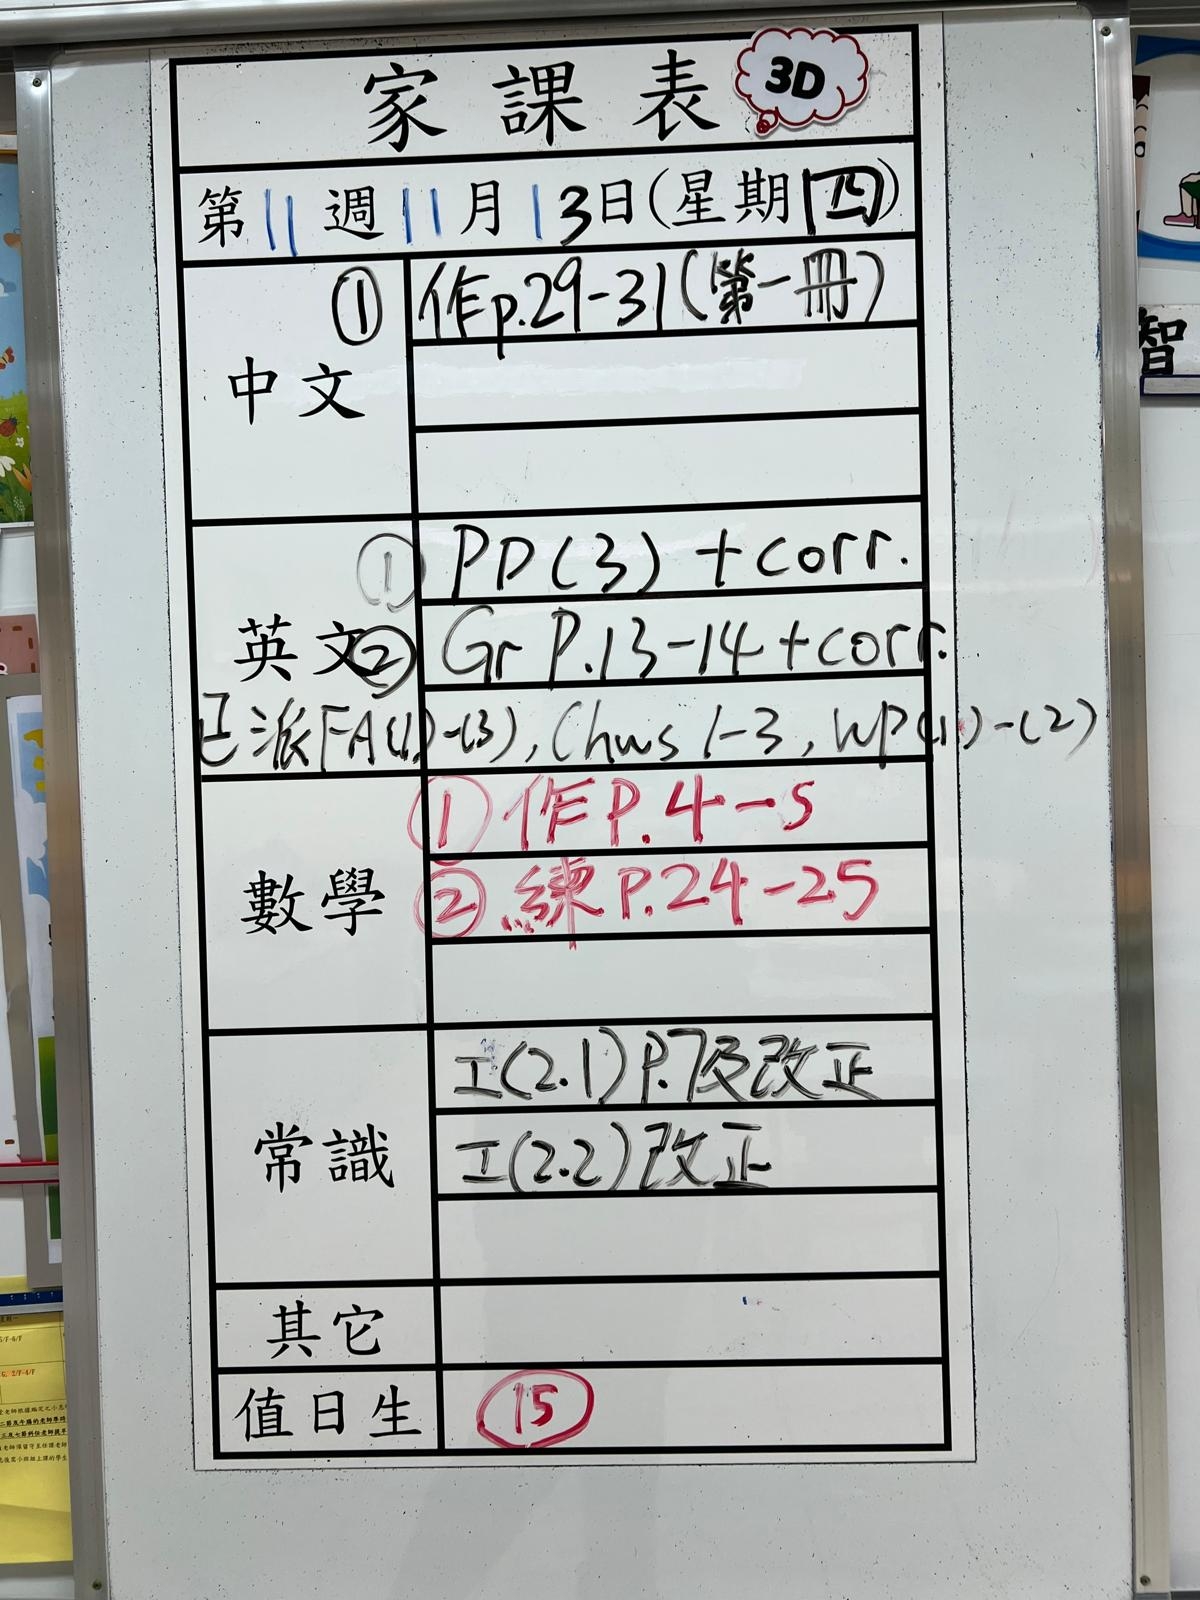 家課表 3D
第11週11月13日(星期四)
中文
① 作p.29-31(第一冊)
英文
① PD(3) + corr.
② Gr P.13-14 + corr.
已派FA(1)-(3), Chws 1-3, WP(1)-(2)
數學
① 作P.4-5
② 練P.24-25
常識
工(2.1)P.7及改正
工(2.2)改正
其它
值日生
15
智